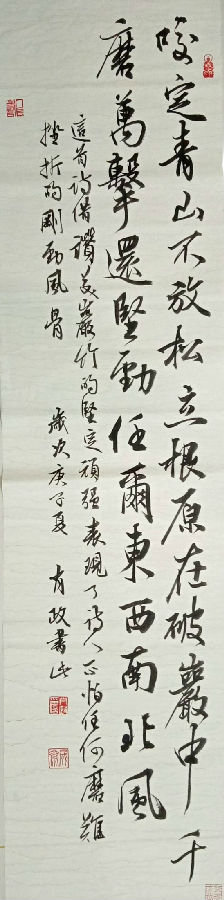 咬定青山不放松立根原在破巖中千
磨萬擊還堅勁任爾東西南北風
這首詩借讚美巖竹的堅定頑强表現了詩人不怕任何磨難
挫折的剛勁風骨 歲次庚子夏 有政書此